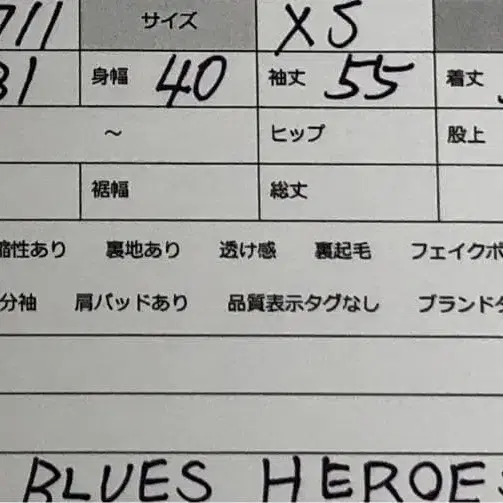 711 サイズ XS
31 身幅 40 袖丈 55 着丈
～ ヒップ 股上
裾幅 総丈
縮性あり 裏地あり 透け感 裏起毛 フェイクポ
分袖 肩パッドあり 品質表示タグなし ブランドタ
BLUES HEROES